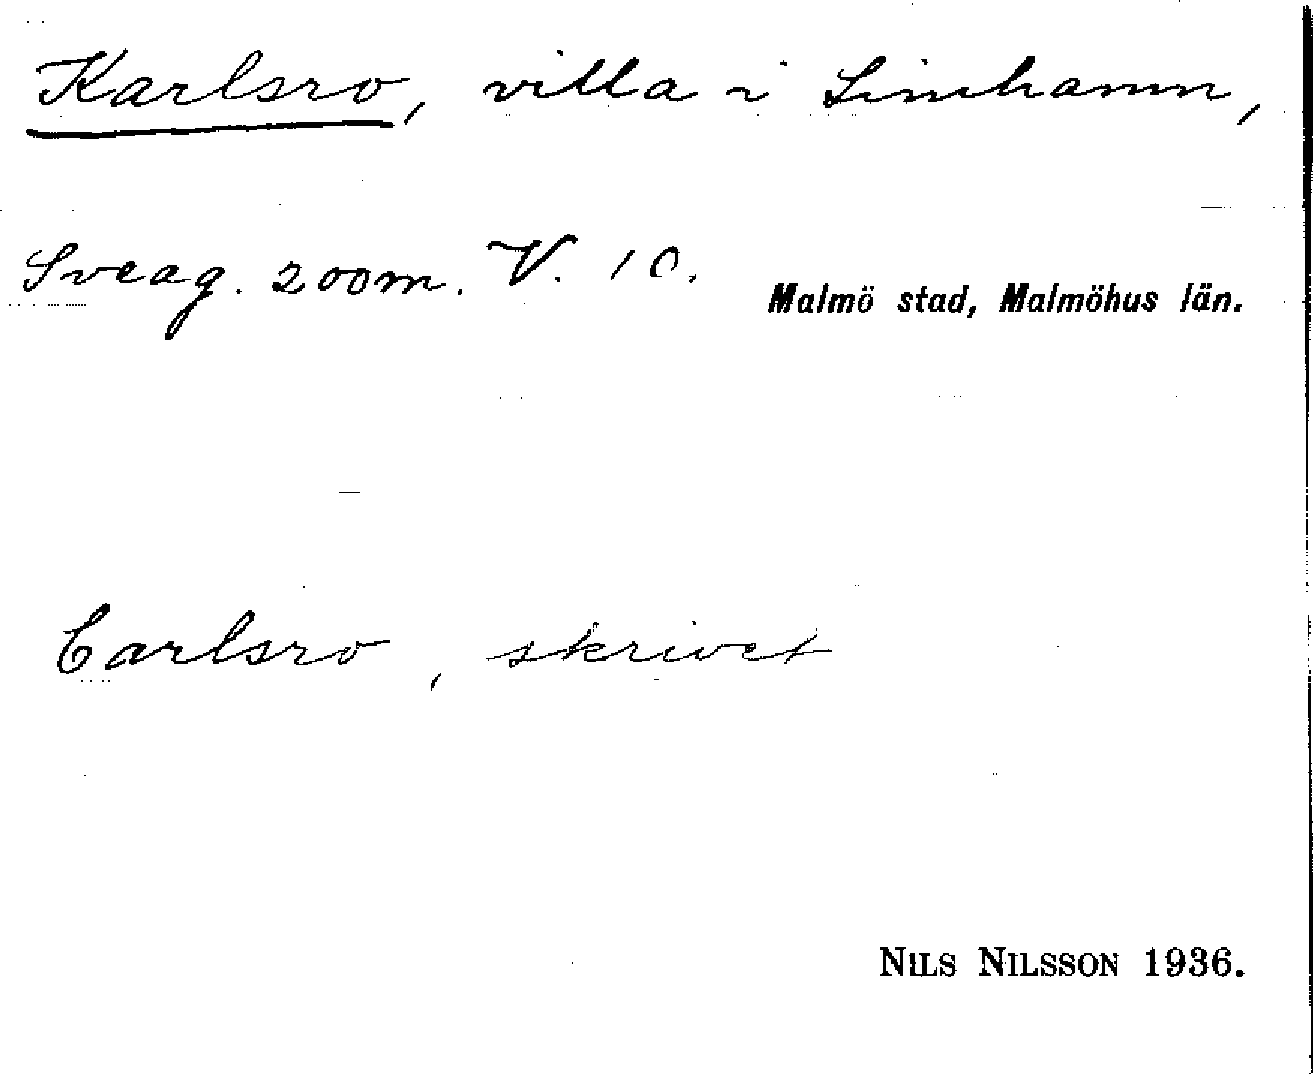 Karlsro, villa i Limhamn,
Sveag. 200m. V. 10.
Malmö stad, Malmöhus län.
Carlsro, skrivet
NILS NILSSON 1936.